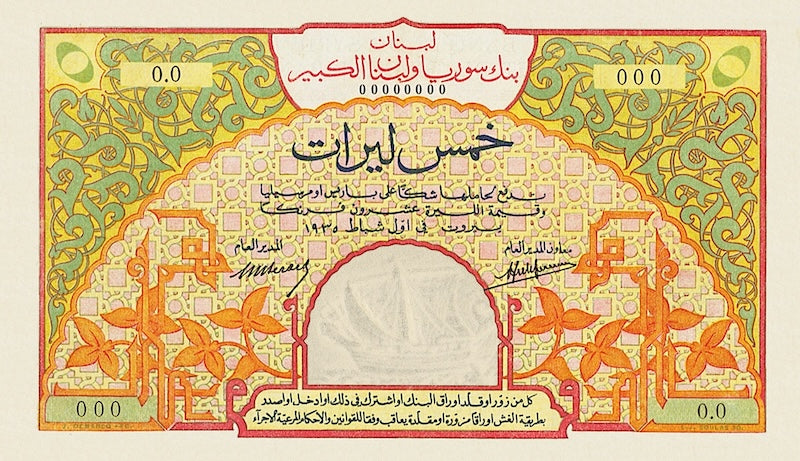 لبنان
بنك سوريا ولبنان الكبير
000
0.0
00000000
خمس ليرات
يدفع لحاملها شكًّا على باريس او مرسيليا
وقيمة الليرة عشرون فرنكًا
بيروت في اول شباط ١٩٣٥
معاون المدير العام
المدير العام
كل من زوّر او قلّد اوراق البنك او اشترك في ذلك او ادخل او اصدر
بطريقة الغش اوراقا مزوّرة او مقلدة يعاقب وفقا للقوانين والاحكام المرعيّة الاجرآء
0.0
000